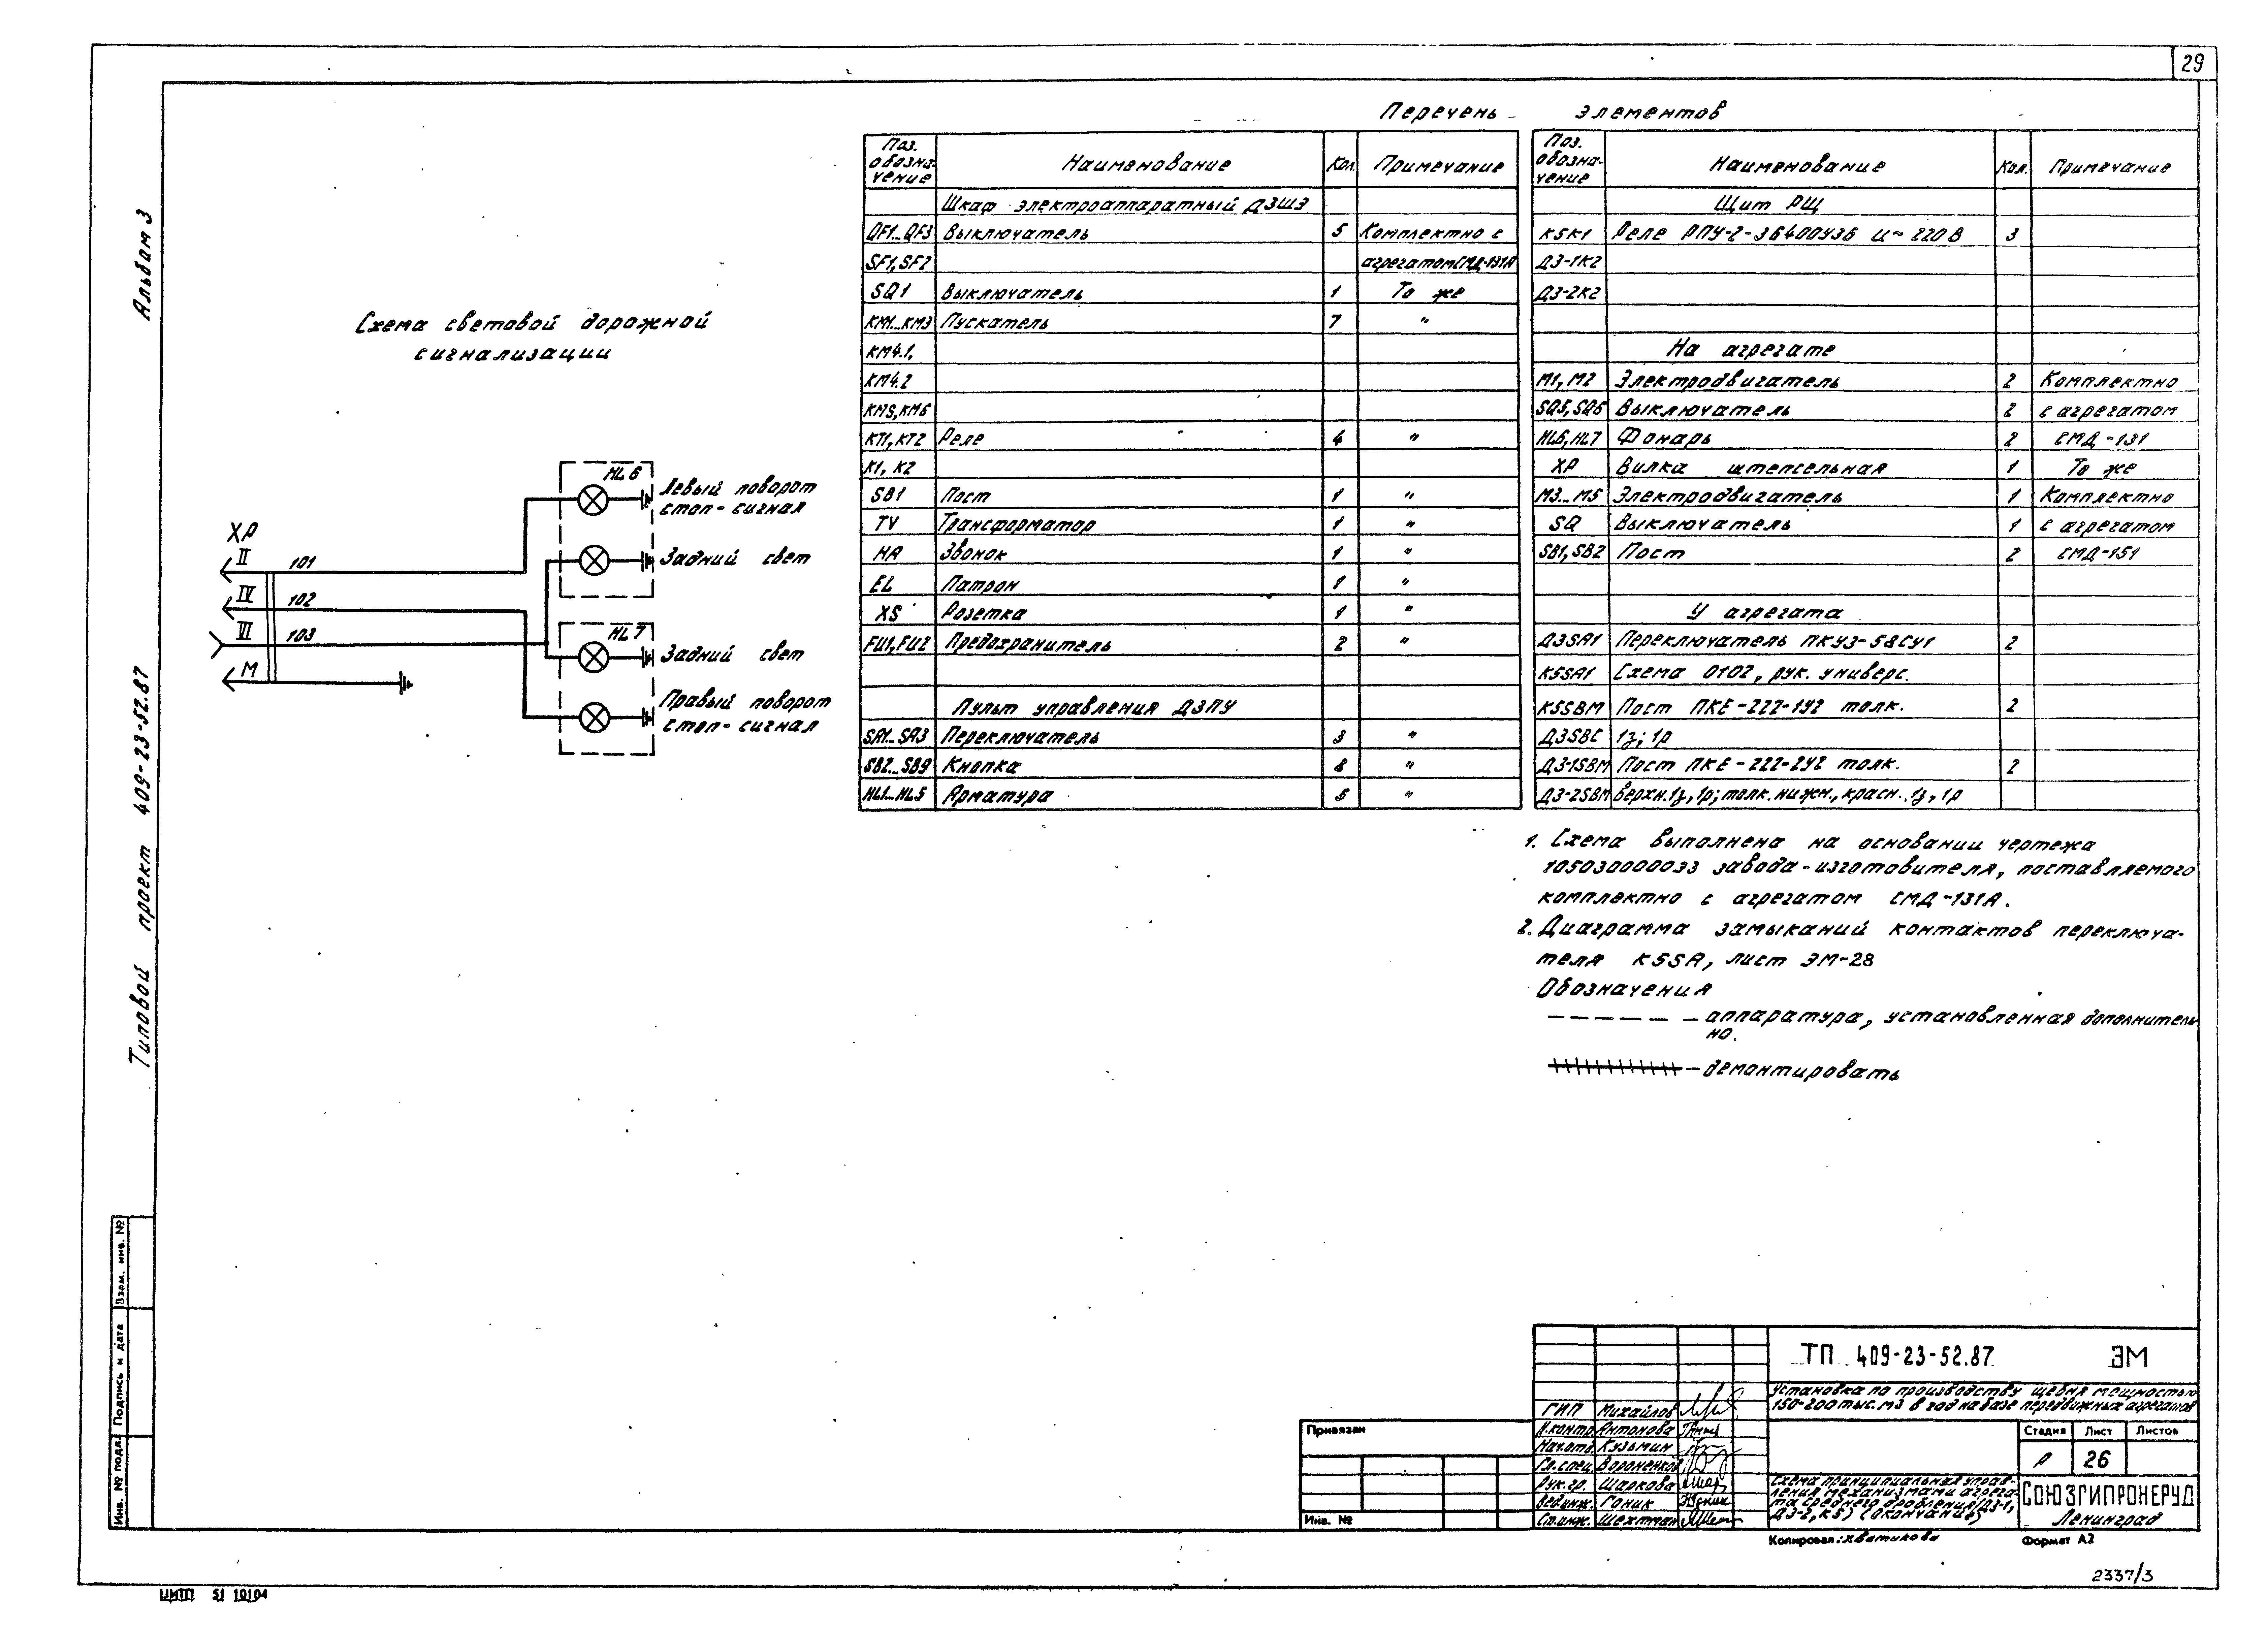 29
Альбом 3
Типовой проект 409-23-52.87
Схема световой дорожной
сигнализации
XP
II 101
IV 102
VI 103
M
HL6
Левый поворот
стоп-сигнал
Задний свет
HL7
Задний свет
Правый поворот
стоп-сигнал
Перечень элементов
Поз. обозна-чение Наименование Кол. Примечание
Шкаф электроаппаратный ДЗШЗ
QF1...QF3 Выключатель 5 Комплектно с
SF1, SF2 агрегатом СМД-131А
SQ1 Выключатель 1 То же
KM1...KM3 Пускатель 7 "
KM4.1,
KM4.2
KM5, KM6
KT1, KT2 Реле 4 "
K1, K2
SB1 Пост 1 "
TV Трансформатор 1 "
HA Звонок 1 "
EL Патрон 1 "
XS Розетка 1 "
FU1, FU2 Предохранитель 2 "
Пульт управления ДЗПУ
SA1...SA3 Переключатель 3 "
SB2...SB9 Кнопка 8 "
HL1...HL5 Арматура 5 "
Поз. обозна-чение Наименование Кол. Примечание
Щит РЩ
K5K1 Реле РПУ-2-36400У3Б U~220В 3
Д3-1К2
Д3-2К2
На агрегате
M1, M2 Электродвигатель 2 Комплектно
SQ5, SQ6 Выключатель 2 с агрегатом
HL6, HL7 Фонарь 2 СМД-131
XP Вилка штепсельная 1 То же
M3...M5 Электродвигатель 1 Комплектно
SQ Выключатель 1 с агрегатом
SB1, SB2 Пост 2 СМД-151
У агрегата
Д3SA1 Переключатель ПКУ3-58СУ1 2
K5SA1 Схема 0102, рук. универс.
K5SBM Пост ПКЕ-222-1У2 толк. 2
Д3SBC 1з; 1р
Д3-1SBM Пост ПКЕ-222-2У2 толк. 2
Д3-2SBM верхн. 1з, 1р; толк. нижн., красн. 1з, 1р
1. Схема выполнена на основании чертежа
105030000033 завода-изготовителя, поставляемого
комплектно с агрегатом СМД-131А.
2. Диаграмма замыканий контактов переключа-
теля K5SA, лист ЭМ-28
Обозначения
– аппаратура, установленная дополнитель
но.
– демонтировать
Инв. № подл. Подпись и дата Взам. инв. №
Привязан
Инв. №
ТП 409-23-52.87 ЭМ
Установка по производству щебня мощностью
150-200 тыс. м3 в год на базе передвижных агрегатов
ГИП Михайлов
Н.контр. Антонова
Нач.отд. Кузьмин
Гл.спец. Вороненков
Рук.гр. Шаркова
Вед.инж. Гоник
Ст.инж. Шехтман
Стадия Лист Листов
Р 26
Схема принципиальная управ-
ления механизмами агрега-
та среднего дробления (Д3-1,
Д3-2, К5) (окончание)
СОЮЗГИПРОНЕРУД
Ленинград
Копировал: Хватикова Формат А2
2337/3
ЦИТП 51 10104